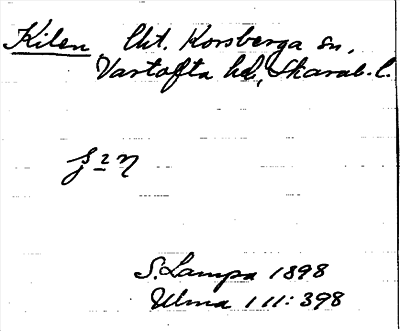 Kilen, Cht. Korsberga sn,
Vartofta hd, Skarab. l.
S. Lampa 1898
Ulma 111: 398